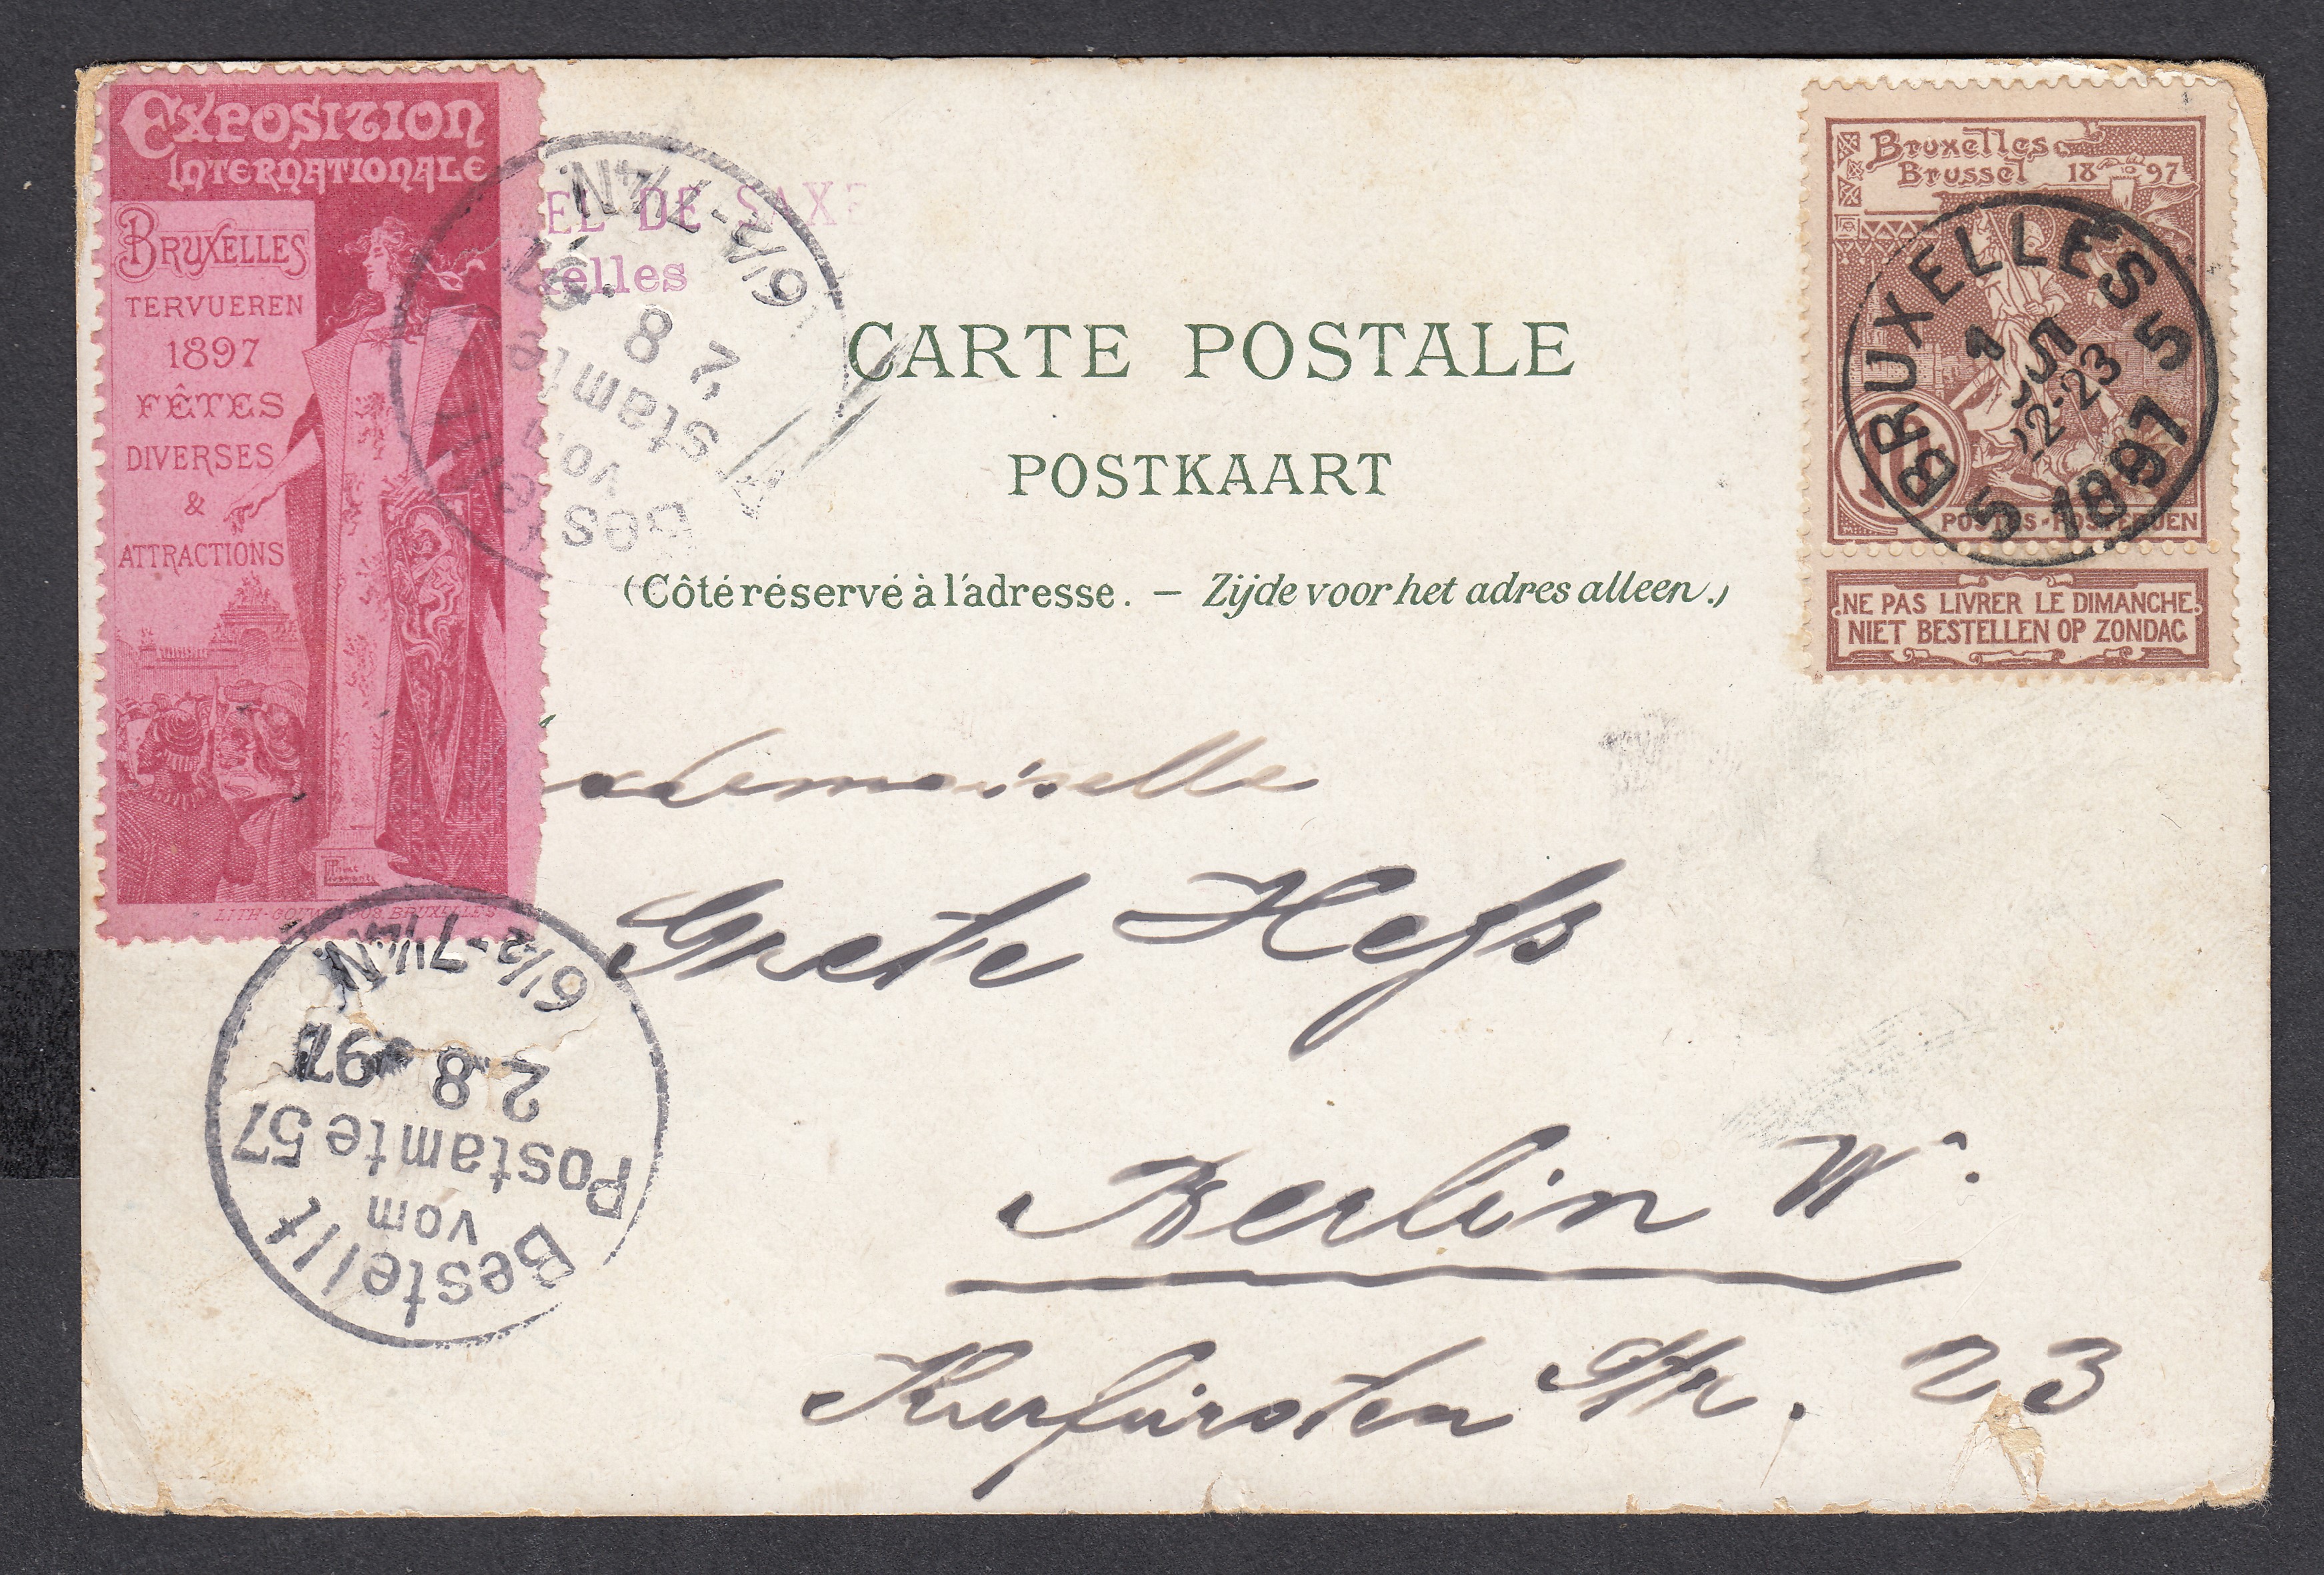 EXPOSITION
INTERNATIONALE
BRUXELLES
TERVUEREN
1897
FÊTES
DIVERSES
&
ATTRACTIONS
EL DE SAXE
xelles
6½-7¼N
2 8 97
Best
vom
stamte
CARTE POSTALE
POSTKAART
(Côté réservé à l'adresse. – Zijde voor het adres alleen.)
Bruxelles
Brussel 1897
10
POSTES-POSTERIJEN
NE PAS LIVRER LE DIMANCHE.
NIET BESTELLEN OP ZONDAG
BRUXELLES 5
1
22-23
5 1897
ademoiselle
Grete Heſs
Berlin W.
Kurfürsten Str. 23
Bestellt
vom
Postamte 57
2.8.97
6½-7¼N